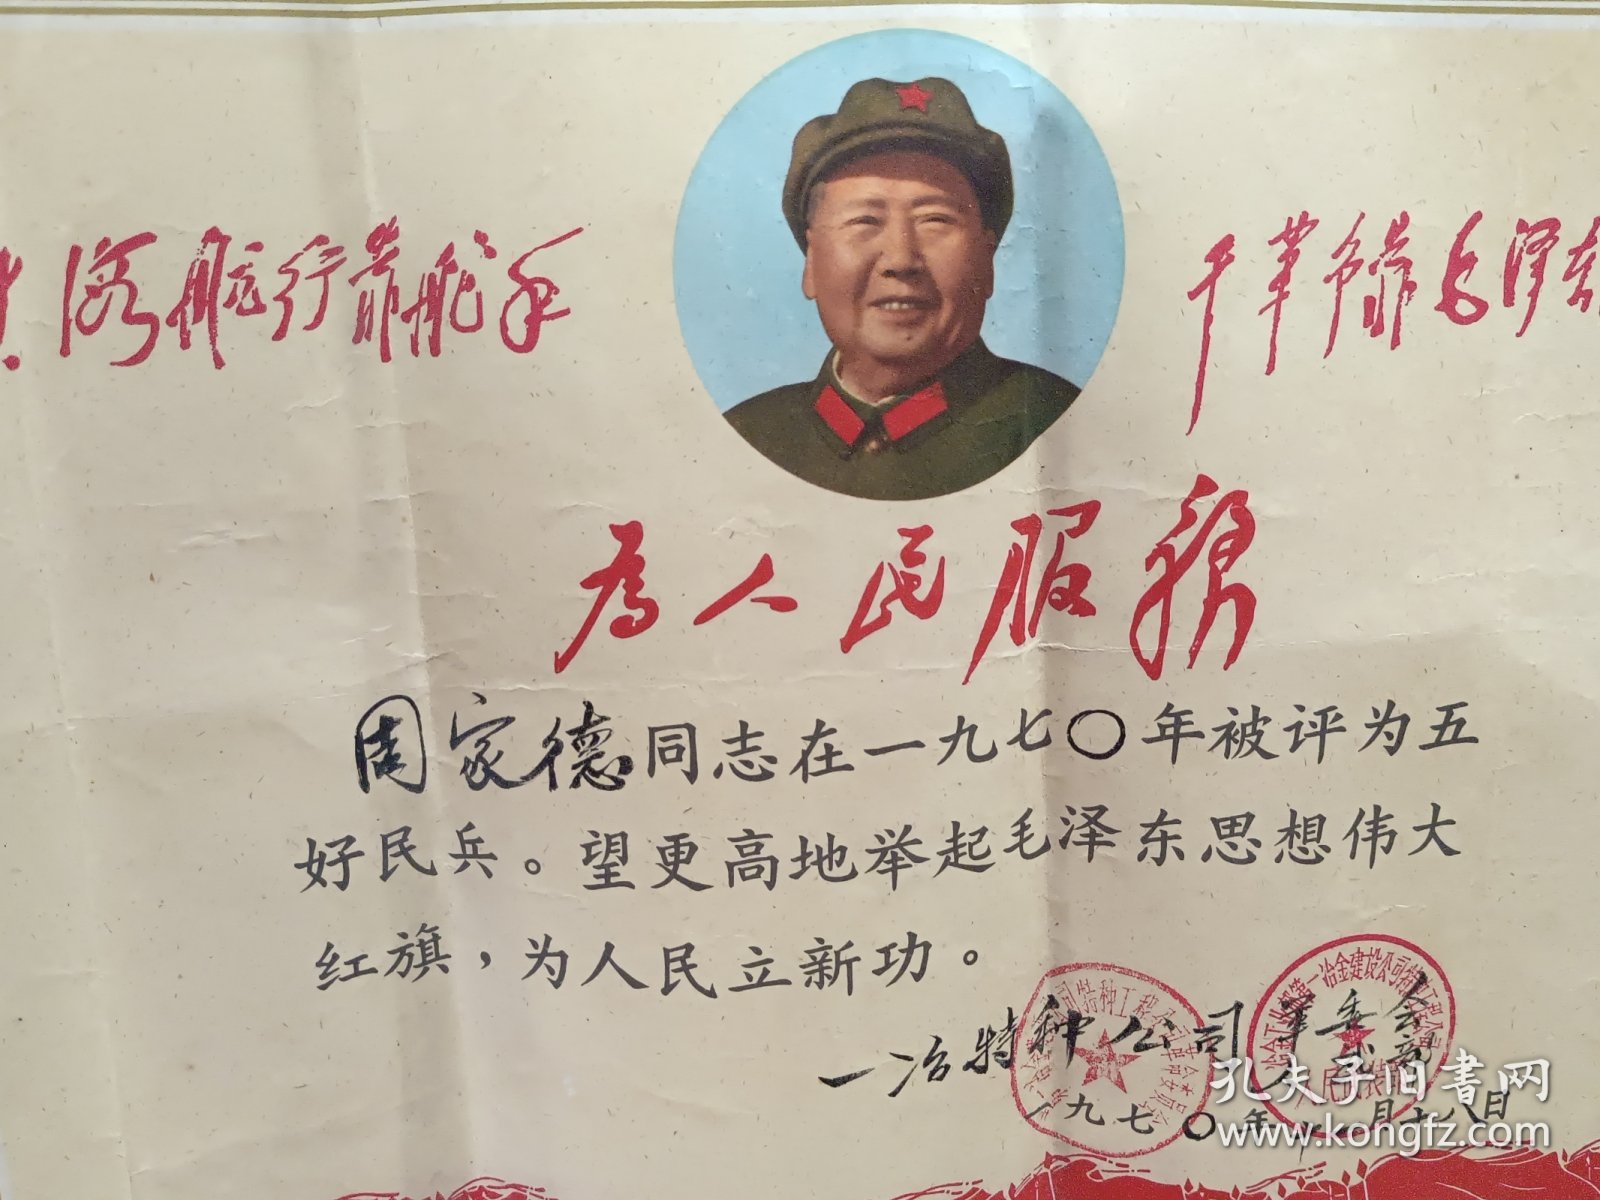 海航行靠舵手
干革命靠毛泽东
为人民服务
周家德同志在一九七〇年被评为五
好民兵。望更高地举起毛泽东思想伟大
红旗，为人民立新功。
一冶特种公司革委会
人武部
一九七〇年十二月十八日
孔夫子旧书网
www.kongfz.com